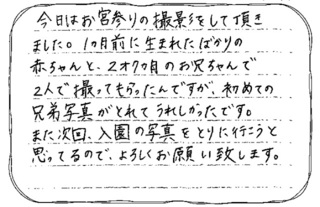 今日はお宮参りの撮影をして頂き
ました。1ヵ月前に生まれたばかりの
赤ちゃんと、2才7ヵ月のお兄ちゃんで
2人で撮ってもらったんですが、初めての
兄弟写真がとれてうれしかったです。
また次回、入園の写真をとりに行こうと
思ってるので、よろしくお願い致します。